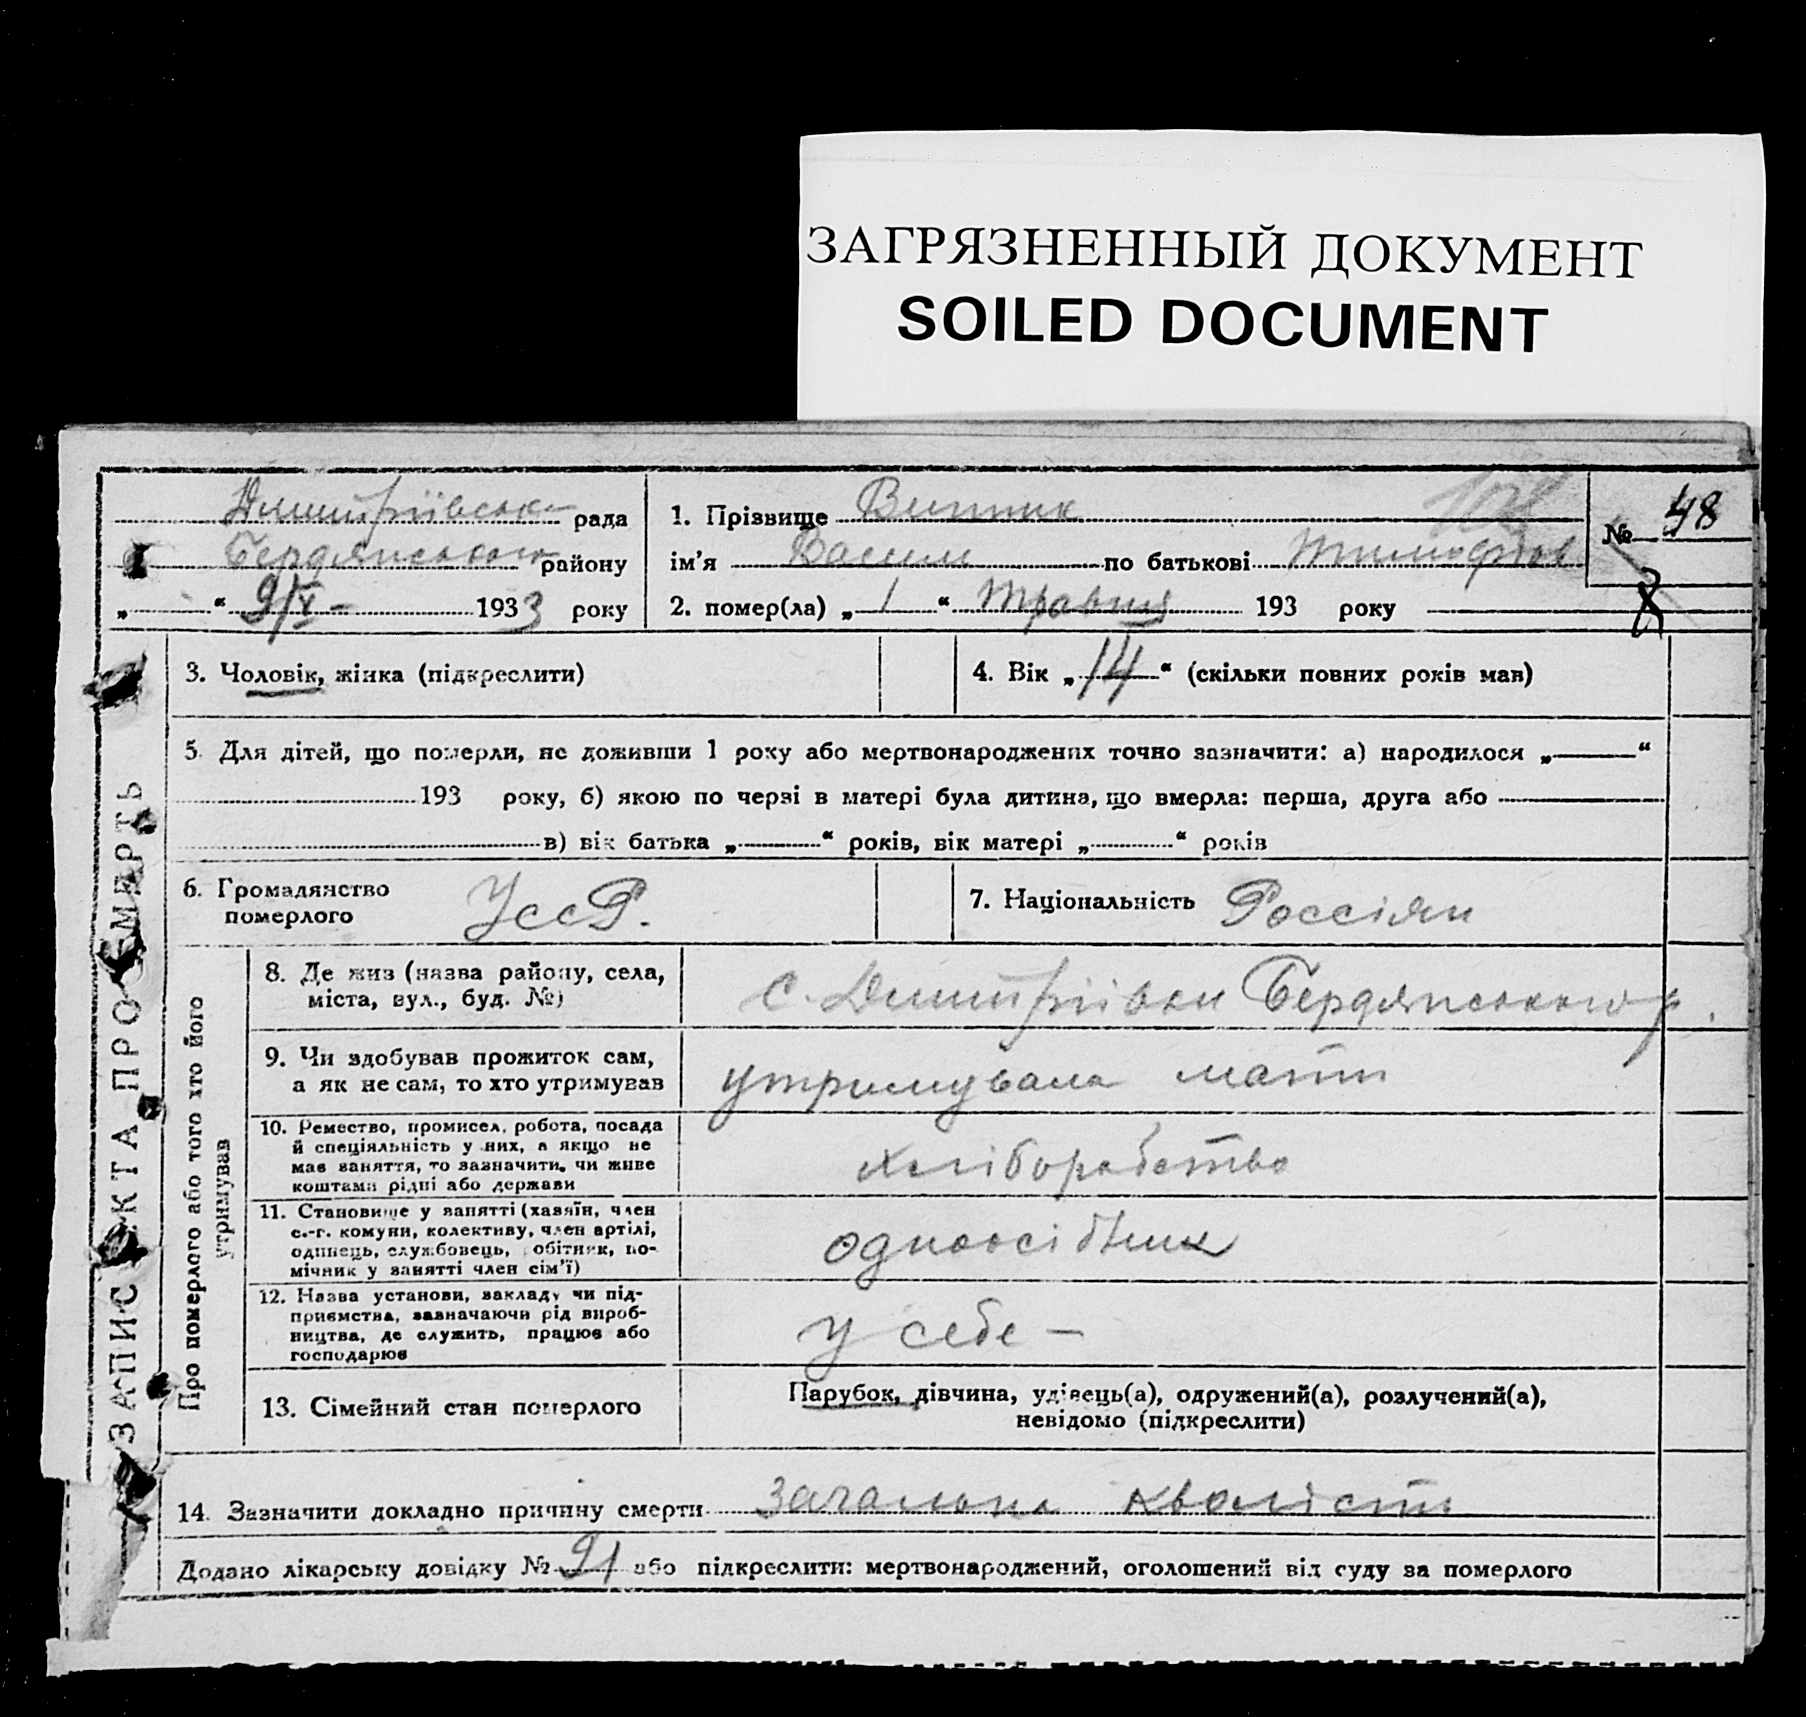 ЗАГРЯЗНЕННЫЙ ДОКУМЕНТ
SOILED DOCUMENT
Дмитріївськ рада
Бердянського району
„ “ 9/V – 1933 року
1. Прізвище
ім'я Василь по батькові Тимофіїв
2. помер(ла) „ 1 “ Травня 193 року
№ 48
ЗАПИС АКТА ПРО СМЕРТЬ
3. Чоловік, жінка (підкреслити)
4. Вік „ 14 “ (скільки повних років мав)
5. Для дітей, що померли, не доживши 1 року або мертвонароджених точно зазначити: а) народилося „ “
193 року, б) якою по черзі в матері була дитина, що вмерла: перша, друга або
в) вік батька „ “ років, вік матері „ “ років
6. Громадянство
померлого УССР.
7. Національність Россіян
Про померлого або того хто його
утримував
8. Де жив (назва району, села,
міста, вул., буд. №)
с. Дмитрівки Бердянського р.
9. Чи здобував прожиток сам,
а як не сам, то хто утримував
утримувала мати
10. Ремество, промисел, робота, посада
й спеціяльність у них, а якщо не
має заняття, то зазначити, чи живе
коштами рідні або держави
хліборобство
11. Становище у занятті (хазяїн, член
с.-г. комуни, колективу, член артілі,
одинець, службовець, робітник, по-
мічник у занятті член сім'ї)
одноосібник
12. Назва установи, закладу чи під-
приємства, зазначаючи рід вироб-
ництва, де служить, працює або
господарює
у себе –
13. Сімейний стан померлого
Парубок, дівчина, удівець(а), одружений(а), розлучений(а),
невідомо (підкреслити)
14. Зазначити докладно причину смерти Загальна кволість
Додано лікарську довідку № 91 або підкреслити: мертвонароджений, оголошений від суду за померлого